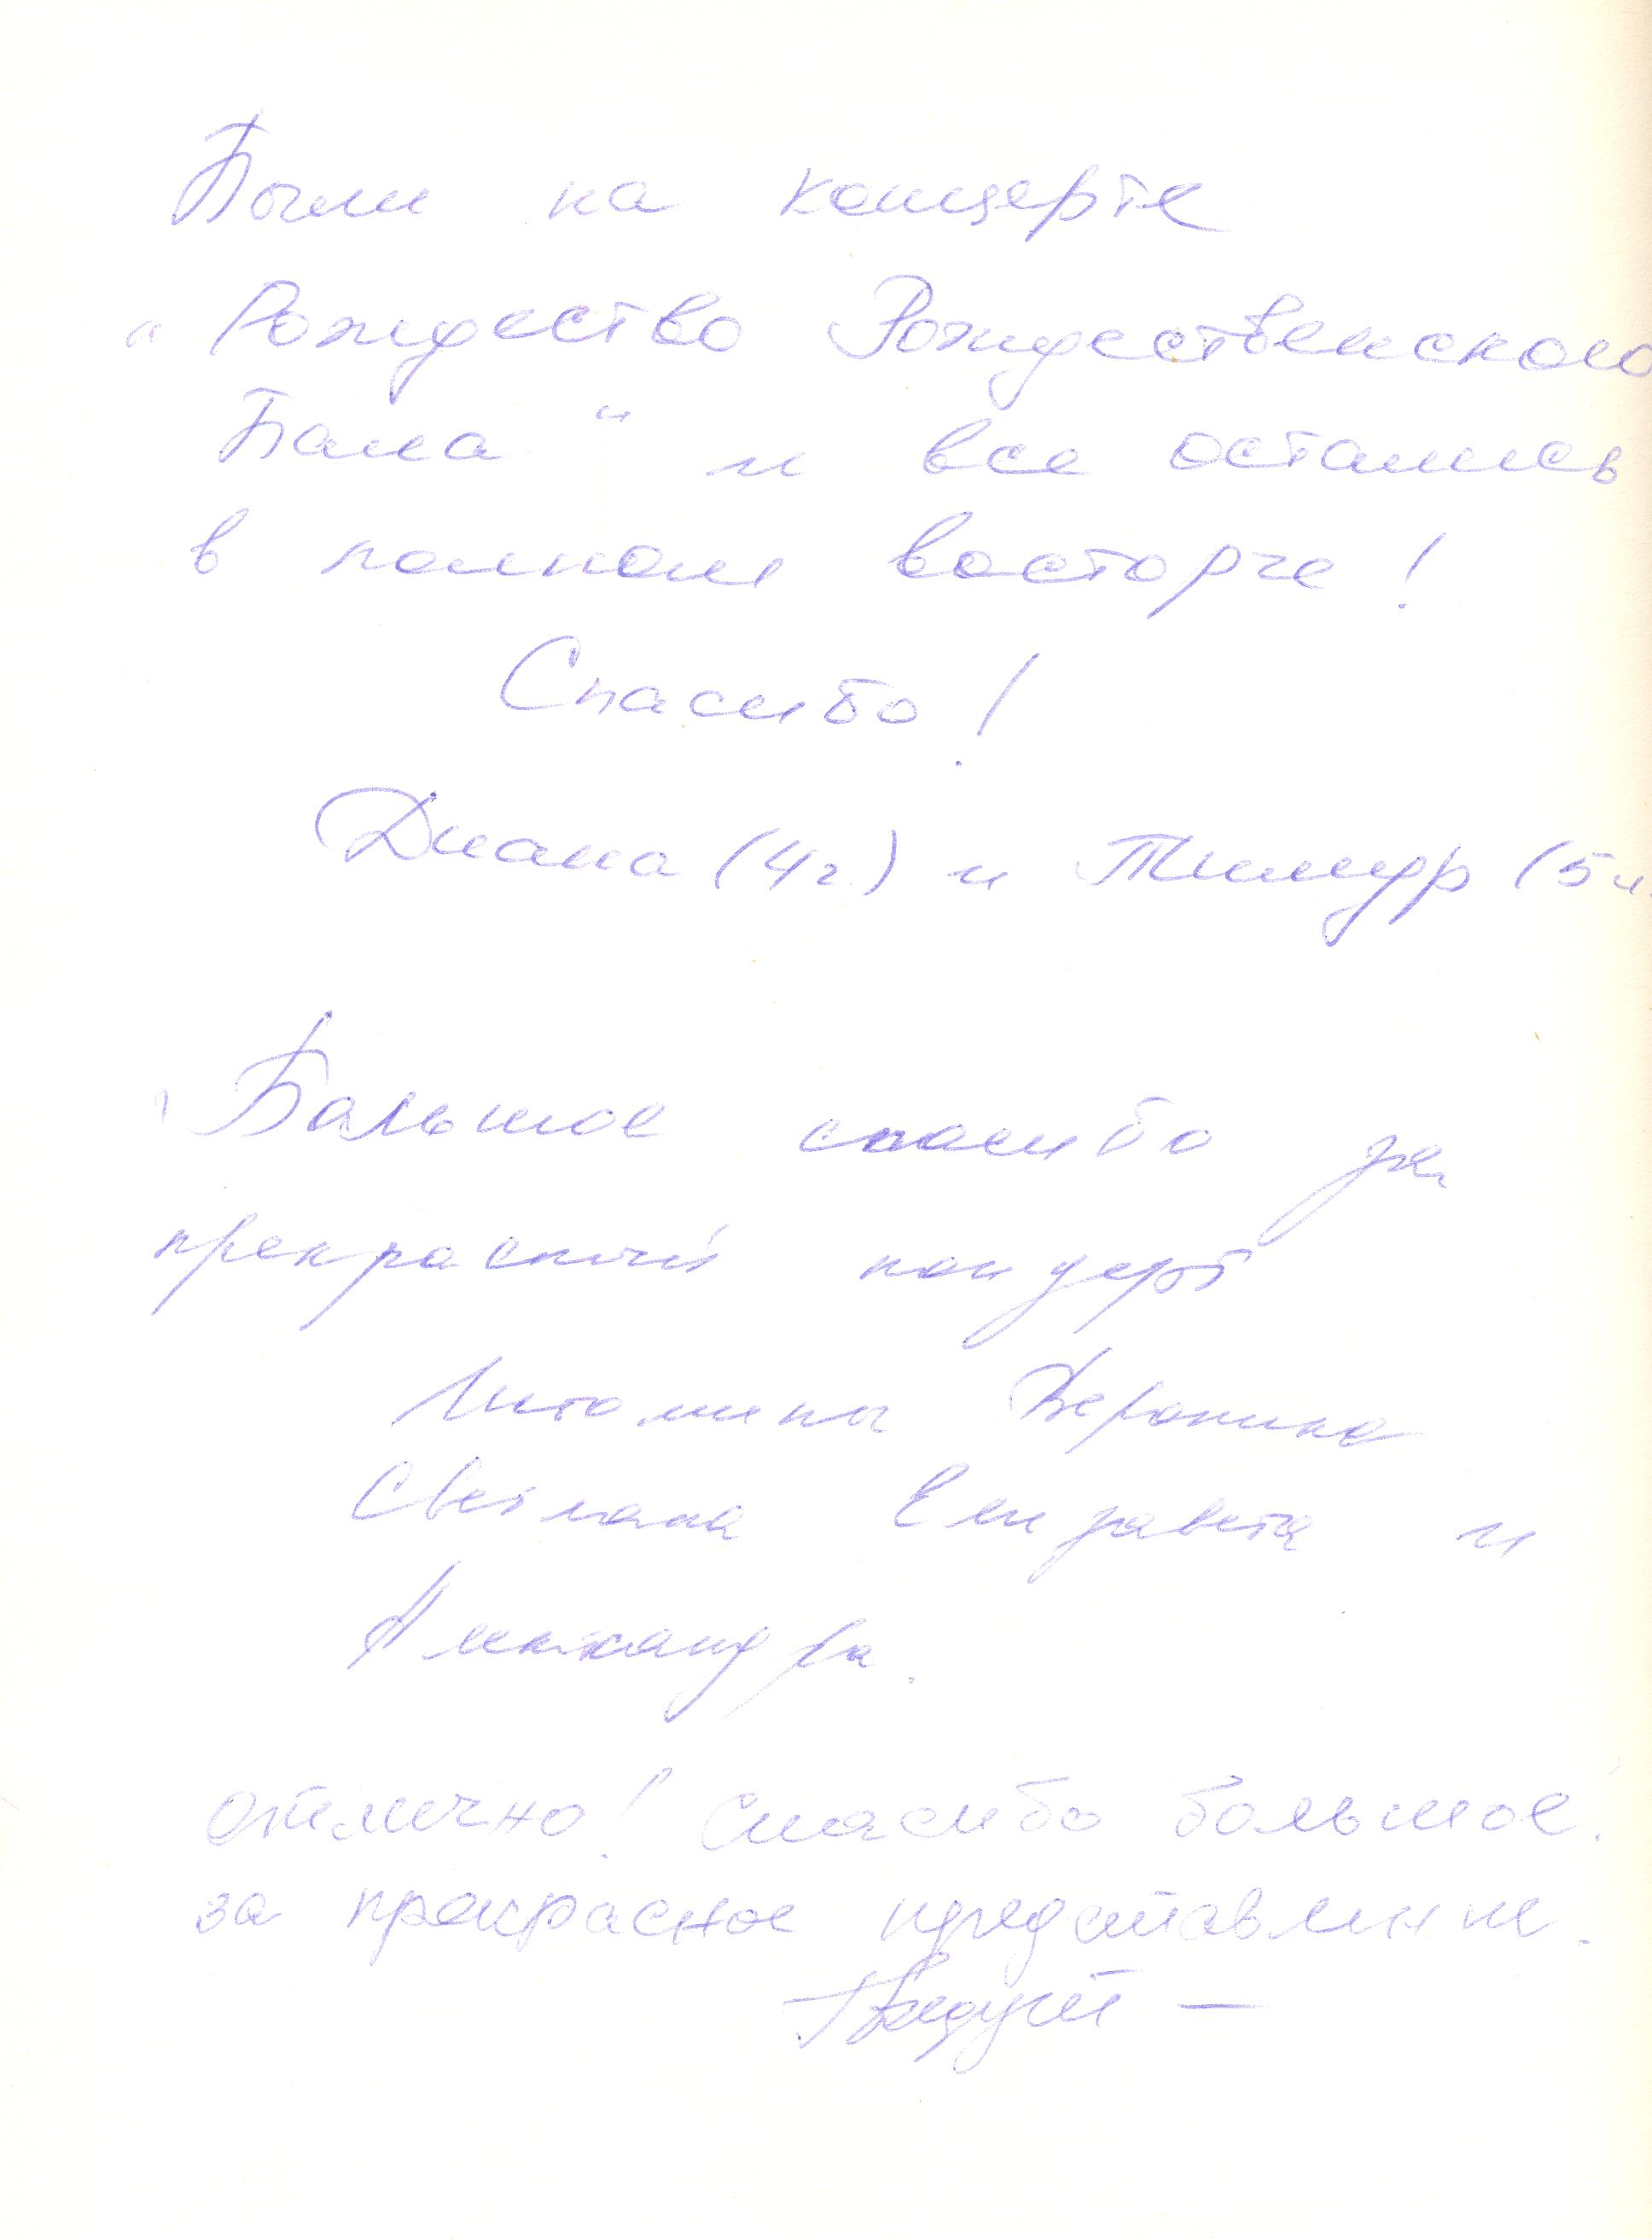 Были на концерте
" Рождество Рождественского
Бала " и все остались
в полном восторге!
Спасибо!
Диана (4г.) и Тимур (5
Большое спасибо за
прекрасный концерт
Вероника
Светлана Елизавета и
Александра.
Отлично! Спасибо большое!
за прекрасное представление.